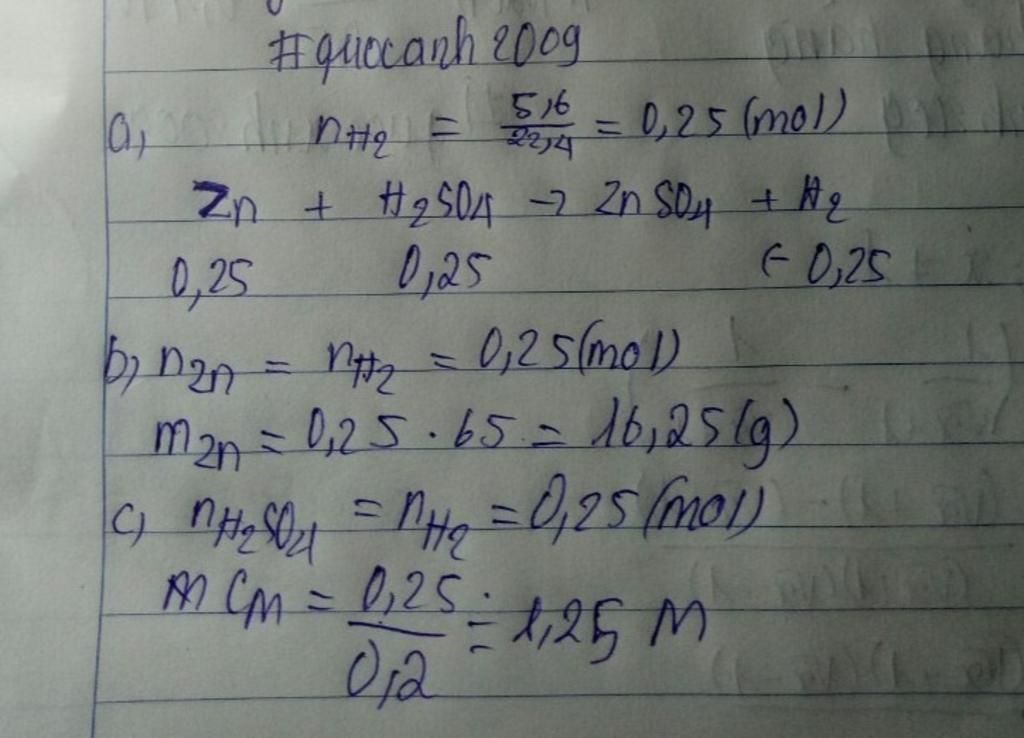 #quocanh2009
a, nH2 = 5,6/22,4 = 0,25 (mol)
Zn + H2SO4 → ZnSO4 + H2
0,25 0,25 ← 0,25
b, nZn = nH2 = 0,25 (mol)
mZn = 0,25 . 65 = 16,25 (g)
c, nH2SO4 = nH2 = 0,25 (mol)
CM = 0,25/0,2 = 1,25 M